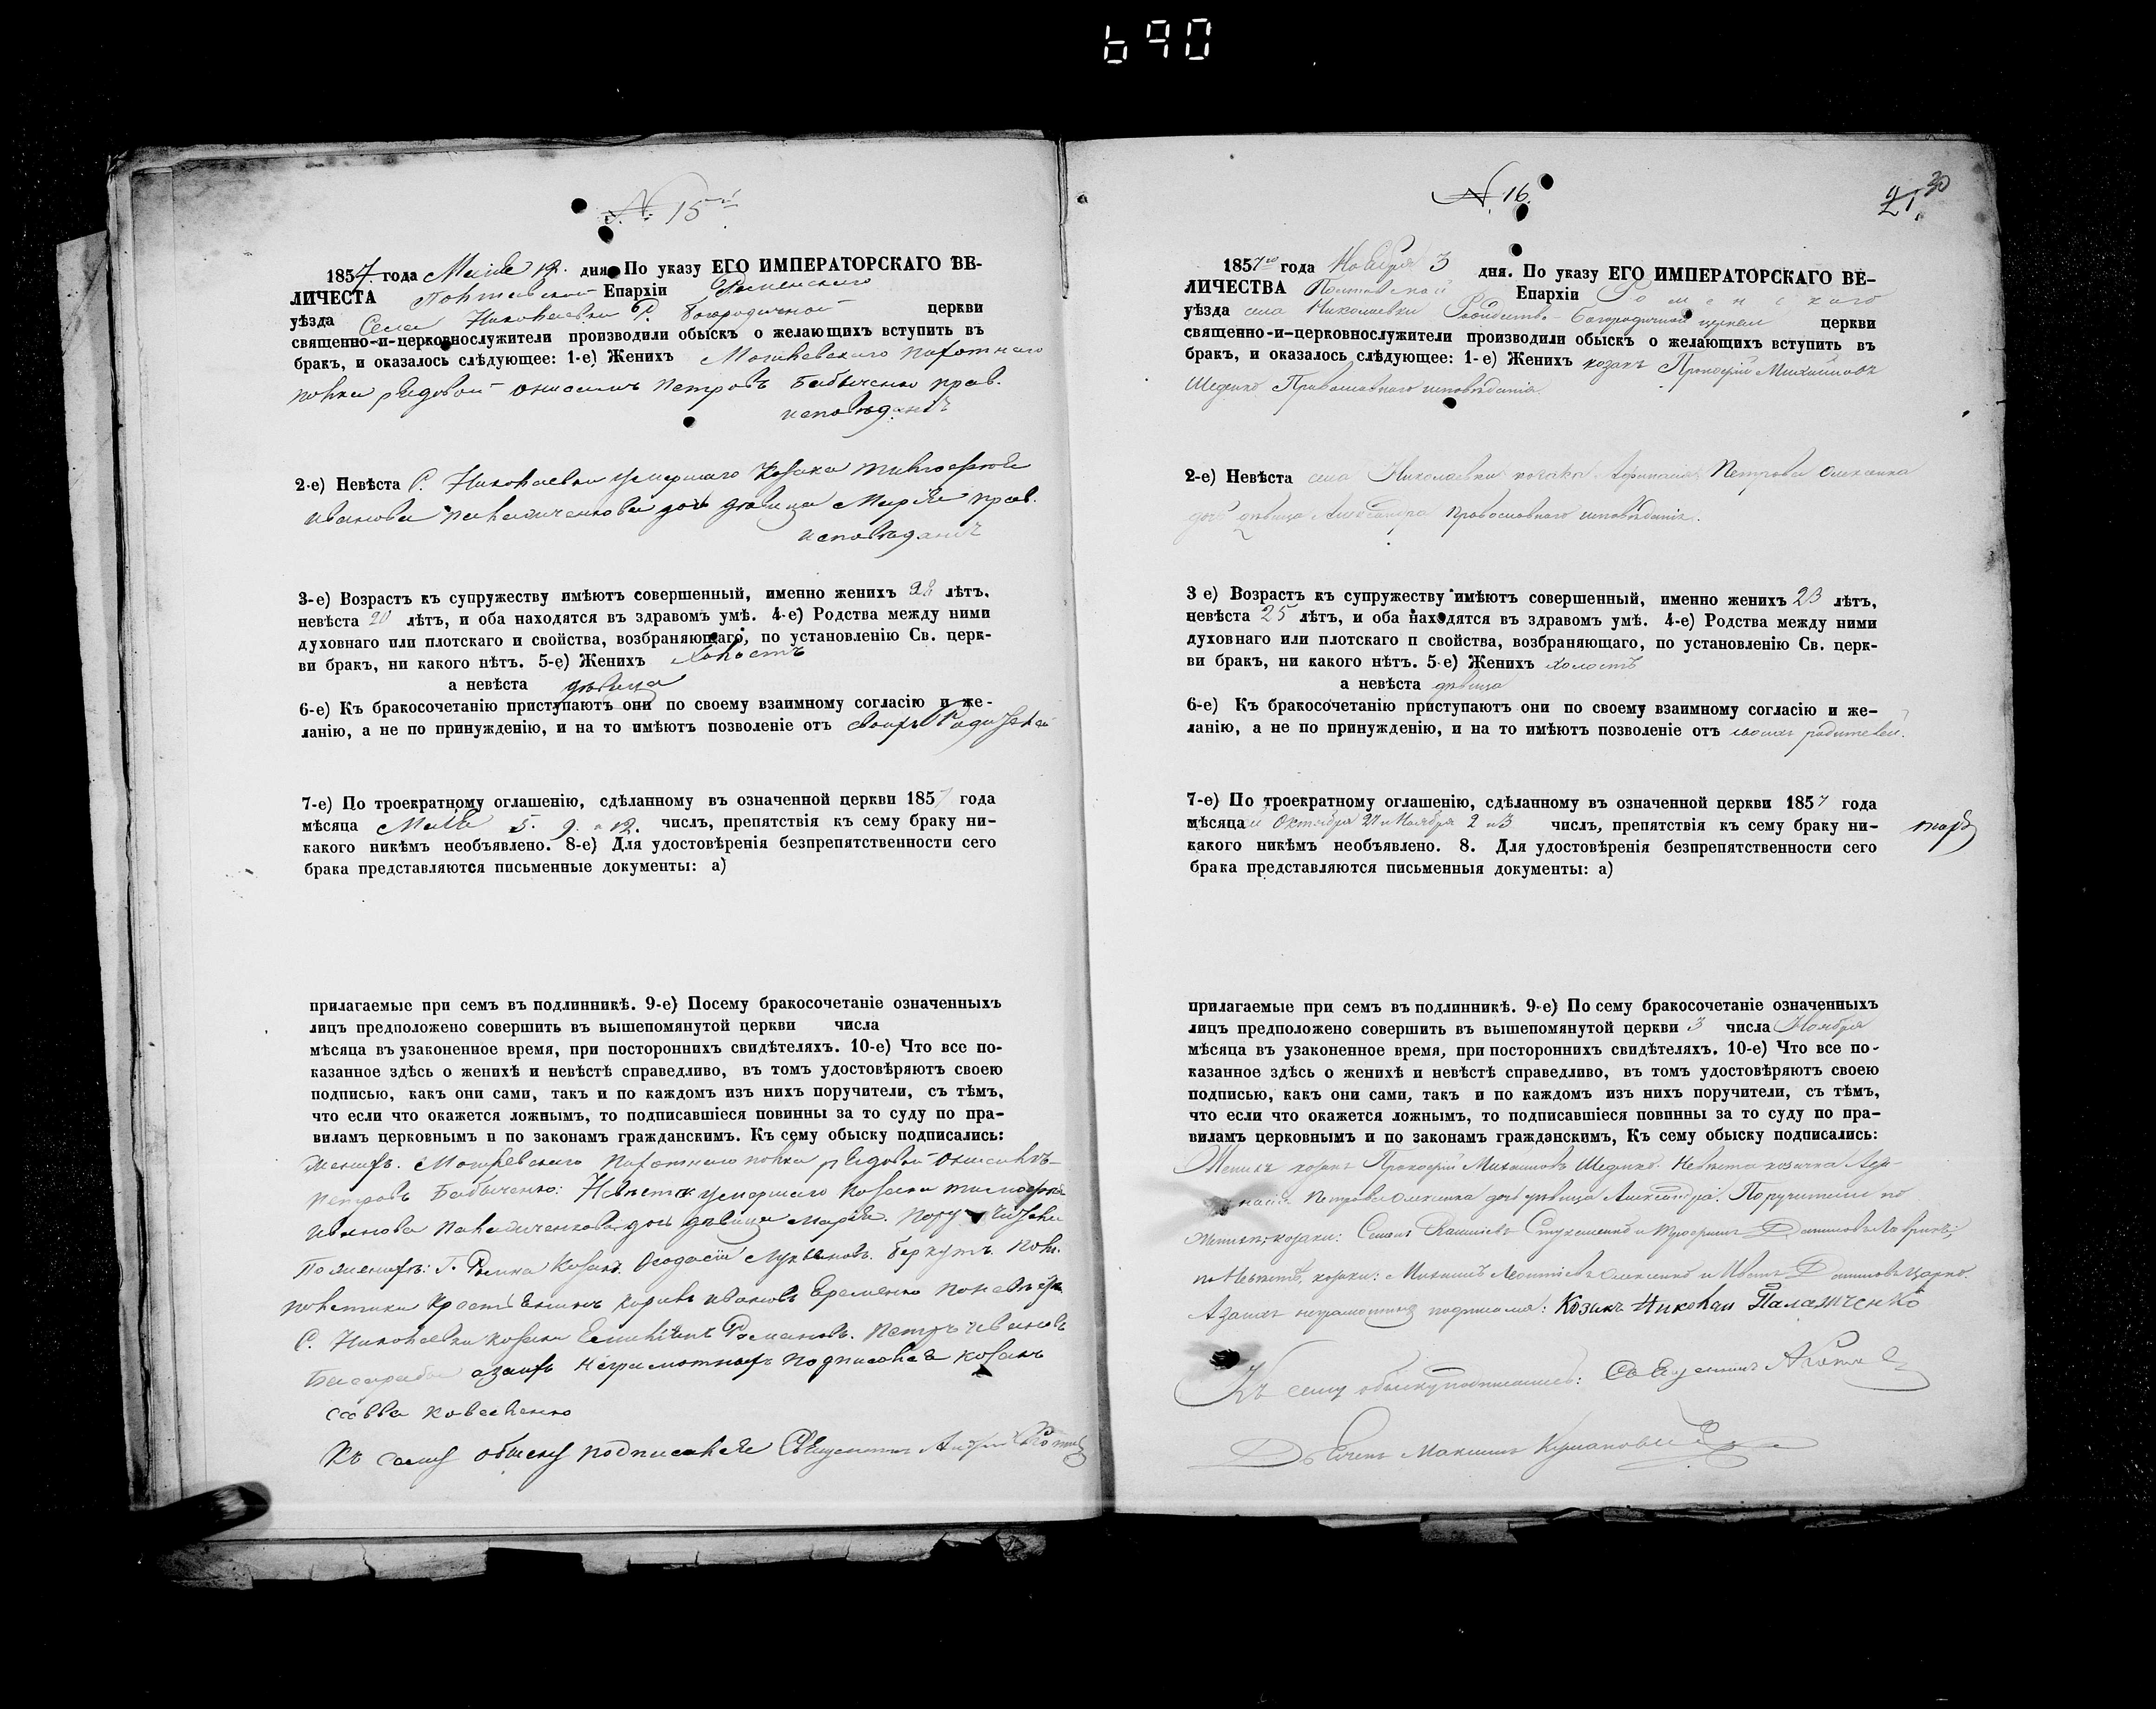 690
№ 15й
1857 года Маія 12. дня. По указу ЕГО ИМПЕРАТОРСКАГО ВЕ-
ЛИЧЕСТА Полтавской Епархіи Роменскаго
уѣзда Села Николаевки Р. Богородичной церкви
священно-и-церковнослужители производили обыскъ о желающихъ вступить въ
бракъ, и оказалось слѣдующее: 1-е) Женихъ Могилевскаго пѣхотнаго
полка рядовой Петровъ Бабыченко прав.
исповѣданія
2-е) Невѣста С. Николаевки умершаго козака Тимофея
Иванова дочь дѣвица Марія прав.
исповѣданія
3-е) Возрастъ къ супружеству имѣютъ совершенный, именно женихъ 28 лѣтъ,
невѣста 20 лѣтъ, и оба находятся въ здравомъ умѣ. 4-е) Родства между ними
духовнаго или плотскаго и свойства, возбраняющаго, по установленію Св. церк-
ви бракъ, ни какого нѣтъ. 5-е) Женихъ Холостъ
а невѣста дѣвица
6-е) Къ бракосочетанію приступаютъ они по своему взаимному согласію и же-
ланію, а не по принужденію, и на то имѣютъ позволеніе отъ своихъ Родителей
7-е) По троекратному оглашенію, сдѣланному въ означенной церкви 1857 года
мѣсяца Маія 5. 9. и 12. числъ, препятствія къ сему браку ни-
какого никѣмъ необъявлено. 8-е) Для удостовѣренія безпрепятственности сего
брака представляются письменные документы: а)
прилагаемые при семъ въ подлинникѣ. 9-е) Посему бракосочетаніе означенныхъ
лицъ предположено совершить въ вышепомянутой церкви числа
мѣсяца въ узаконенное время, при постороннихъ свидѣтеляхъ. 10-е) Что все по-
казанное здѣсь о женихѣ и невѣстѣ справедливо, въ томъ удостовѣряютъ своею
подписью, какъ они сами, такъ и по каждомъ изъ нихъ поручители, съ тѣмъ,
что если что окажется ложнымъ, то подписавшіеся повинны за то суду по пра-
виламъ церковнымъ и по законамъ гражданскимъ. Къ сему обыску подписались:
Женихъ. Могилевскаго пѣхотнаго полка рядовой
Петровъ Бабыченко: Невѣста умершаго козака Тимофея
Иванова дочь дѣвица Марія. Поручители
По женихѣ: Козакъ Феодосій Лукьяновъ. Беркутъ.
Крестьянинъ Иванов Еременко По невѣстѣ
С. Николаевки козаки Романовъ. Петръ Ивановъ
а заихъ неграмотныхъ подписался козакъ
Савва Коваленко
Къ сему обыску подписался Священникъ Андрей
№ 16.
21. 30
1857го года Ноября 3 дня. По указу ЕГО ИМПЕРАТОРСКАГО ВЕ-
ЛИЧЕСТВА Полтавской Епархіи Роменскаго
уѣзда села Николаевки Рождество-Богородичной церкви церкви
священно-и-церковнослужители производили обыскъ о желающихъ вступить въ
бракъ, и оказалось слѣдующее: 1-е) Женихъ козакъ Прокофій Михайловъ
Православнаго исповѣданія
2-е) Невѣста села Николаевки козака Афанасія Петрова Олексенка
дочь дѣвица Александра Православнаго исповѣданія.
3 е) Возрастъ къ супружеству имѣютъ совершенный, именно женихъ 23 лѣтъ,
невѣста 25 лѣтъ, и оба находятся въ здравомъ умѣ. 4-е) Родства между ними
духовнаго или плотскаго и свойства, возбраняющаго, по установленію Св. церк-
ви бракъ, ни какого нѣтъ. 5-е) Женихъ холостъ
а невѣста дѣвица
6-е) Къ бракосочетанію приступаютъ они по своему взаимному согласію и же-
ланію, а не по принужденію, и на то имѣютъ позволеніе отъ своихъ родителей.
7-е) По троекратному оглашенію, сдѣланному въ означенной церкви 1857 года
мѣсяца Октября 27 и Ноября 2 и 3 числъ, препятствія къ сему браку ни-
какого никѣмъ необъявлено. 8. Для удостовѣренія безпрепятственности сего
брака представляются письменныя документы: а)
прилагаемые при семъ въ подлинникѣ. 9-е) По сему бракосочетаніе означенныхъ
лицъ предположено совершить въ вышепомянутой церкви 3 числа Ноября
мѣсяца въ узаконенное время, при постороннихъ свидѣтеляхъ. 10-е) Что все по-
казанное здѣсь о женихѣ и невѣстѣ справедливо, въ томъ удостовѣряютъ своею
подписью, какъ они сами, такъ и по каждомъ изъ нихъ поручители, съ тѣмъ,
что если что окажется ложнымъ, то подписавшіеся повинны за то суду по пра-
виламъ церковнымъ и по законамъ гражданскимъ, Къ сему обыску подписались:
Женихъ козакъ Прокофій Михайловъ Невѣста козачка Афа-
насія Петрова Олексенка дочь дѣвица Александра. Поручители по
Женихѣ, козаки: Семенъ и Даниловъ
по Невѣстѣ, козаки: Михаилъ Леонтіевъ Олексенко и Иванъ Даниловъ
А заихъ неграмотныхъ подписался: Козакъ Николай Паламченко
Къ сему обыску подписались: Священникъ
Дьячекъ Максимъ